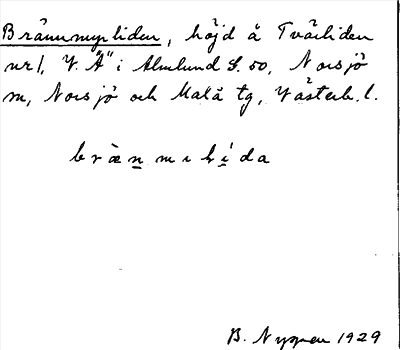 Brännmyrliden, höjd å Tvärliden
nr 1, V. Å" i Almlund S. 50, Norsjö
sn, Norsjö och Malå tg, Västerb. l.
B. Nygren 1929